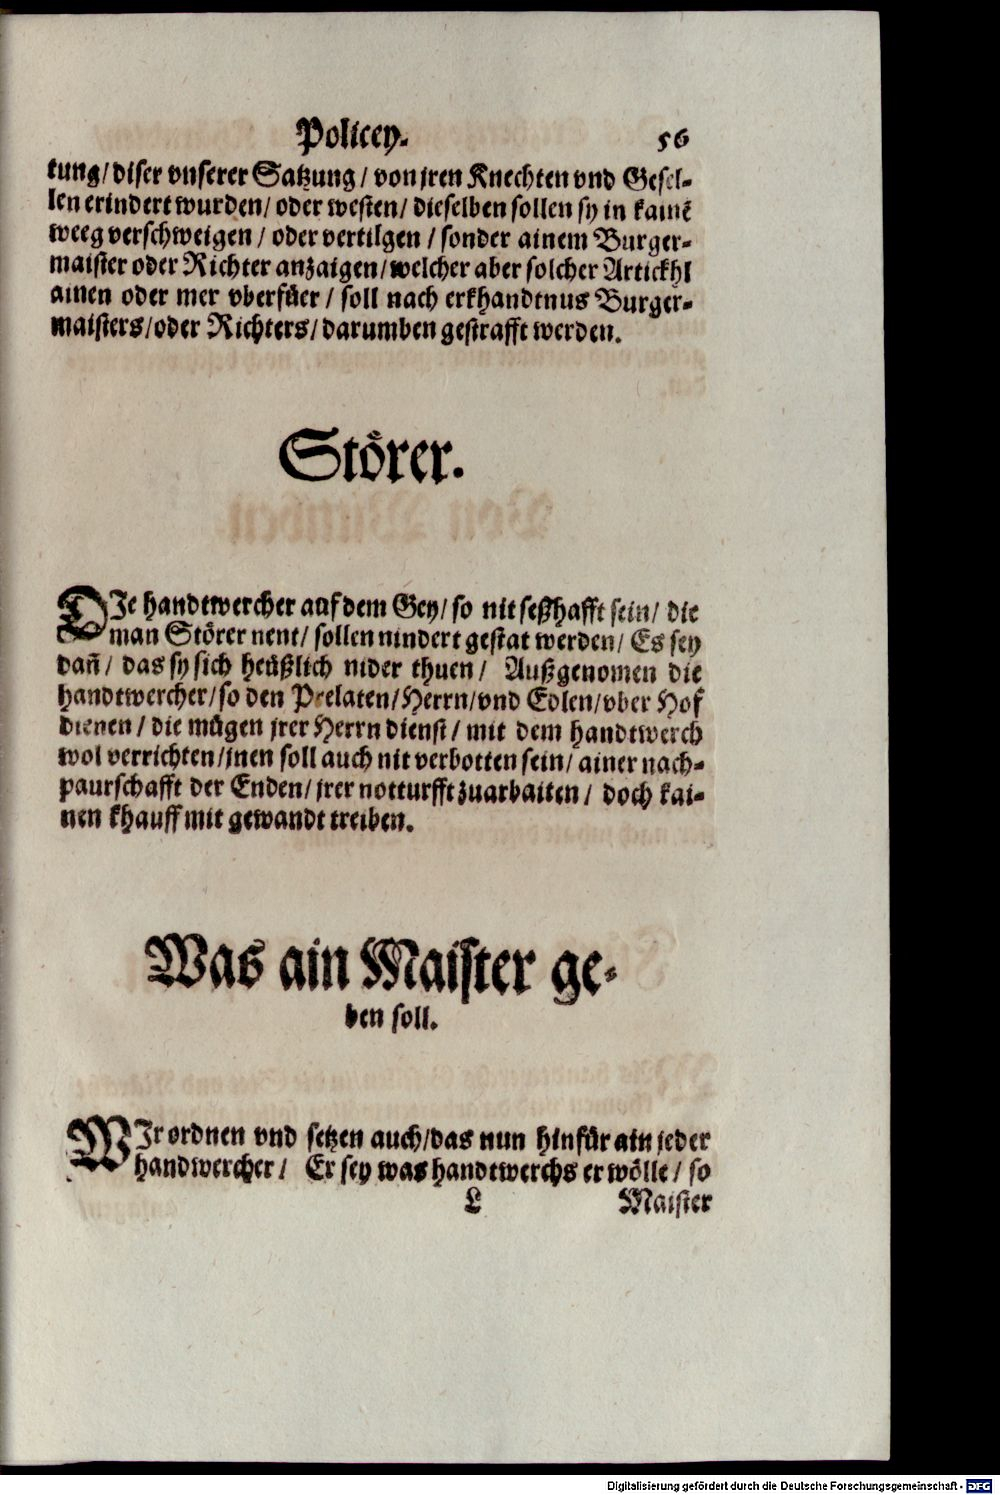 Policey. 56
tung/ diser vnserer Satzung/ von jren Knechten vnd Gesel-
len erindert wurden/ oder westen/ dieselben sollen sy in kainẽ
weeg verschweigen/ oder vertilgen/ sonder ainem Burger-
maister oder Richter anzaigen/ welcher aber solcher Artickhl
ainen oder mer vberfüer/ soll nach erkhandtnus Burger-
maisters/ oder Richters/ darumben gestrafft werden.
Störer.
DIe handtwercher auf dem Gey/ so nit seßhafft sein/ die
man Störer nent/ sollen nindert gestat werden/ Es sey
dañ/ das sy sich heüßlich nider thuen/ Außgenomen die
handtwercher/ so den Prelaten/ Herrn/ vnd Edlen/ vber Hof
dienen/ die mügen jrer Herrn dienst/ mit dem handtwerch
wol verrichten/ jnen soll auch nit verbotten sein/ ainer nach-
paurschafft der Enden/ jrer notturfft zuarbaiten/ doch kai-
nen khauff mit gewandt treiben.
Was ain Maister ge-
ben soll.
WIr ordnen vnd setzen auch/ das nun hinfür ain jeder
handwercher/ Er sey was handtwerchs er wölle/ so
L Maister
Digitalisierung gefördert durch die Deutsche Forschungsgemeinschaft - DFG